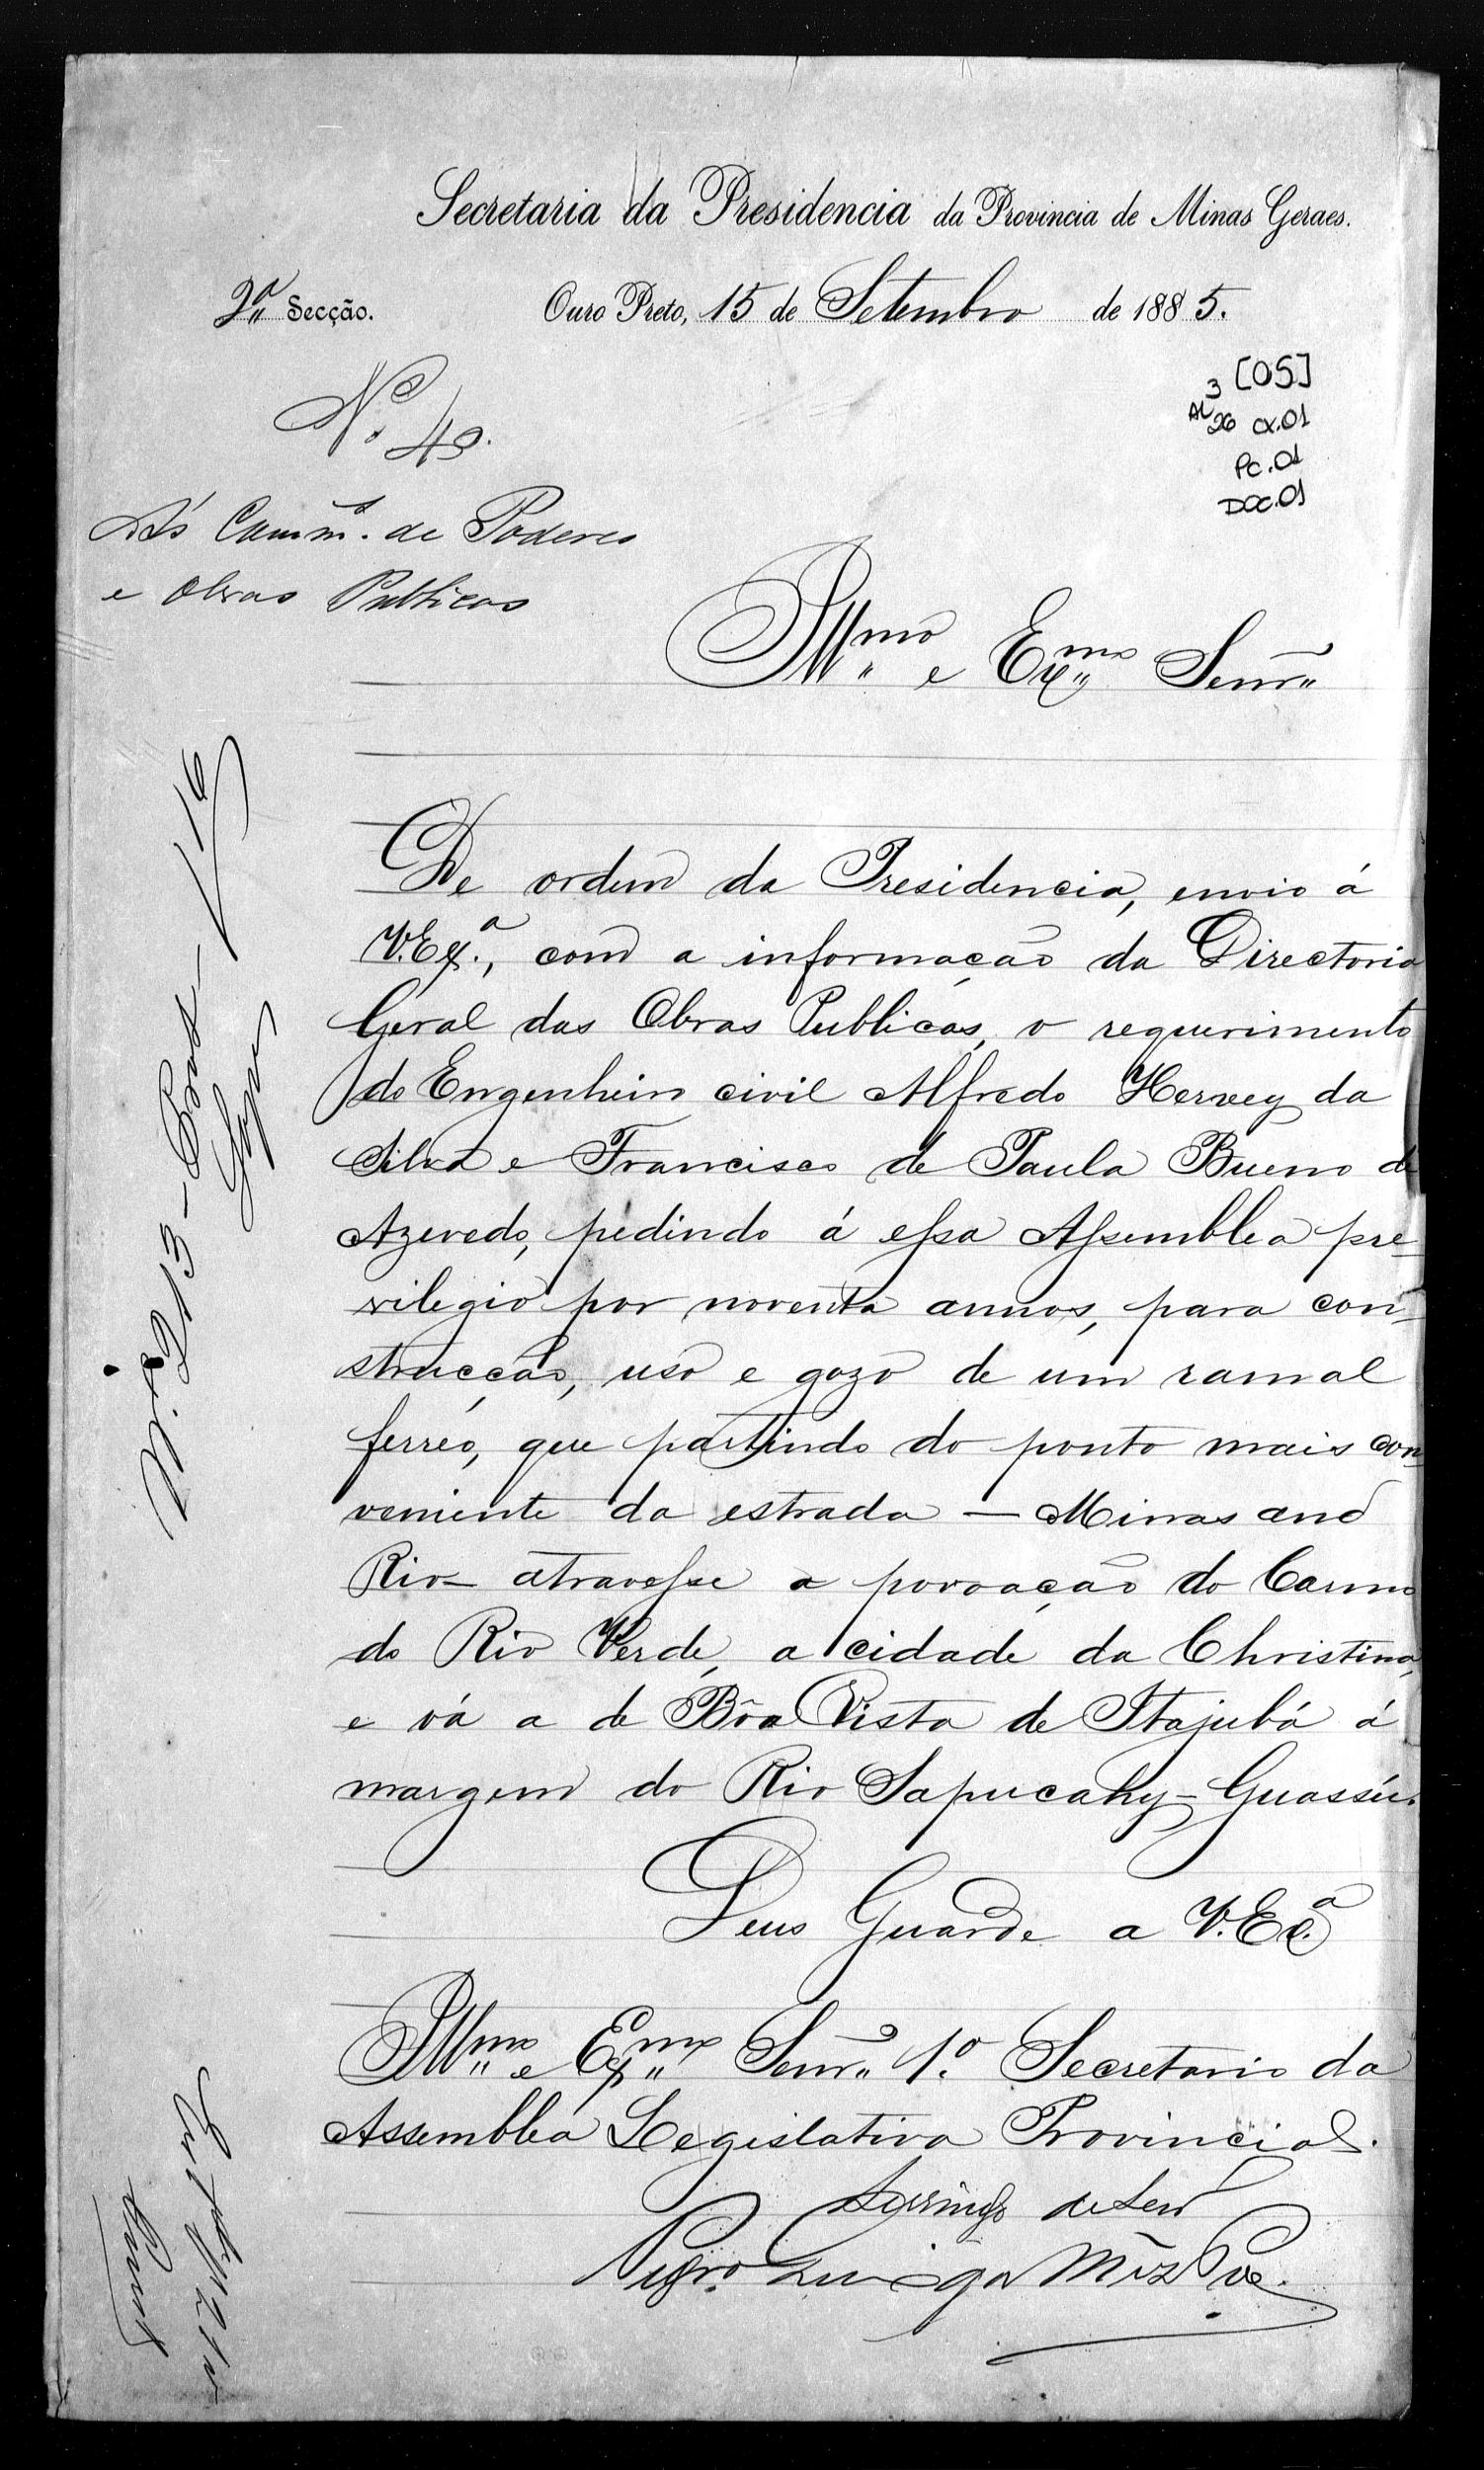 Secretaria da Presidencia da Provincia de Minas Geraes.
2ª Secção. Ouro Preto, 15 de Setembro de 1885.
Nº 40.
[05]
3
AL 26 CX.01
PC.01
DOC.01
Ás Comm.s de Poderes
e Obras Publicas
Illmo e Exmo Senr
De ordem da Presidencia, envio á
V.Exª., com a informação da Directoria
Geral das Obras Publicas, o requerimento
do Engenheiro civil Alfredo Hervey da
Silva e Francisco de Paula Bueno de
Azevedo, pedindo á essa Assemblea pre-
vilegio por noventa annos, para con-
strucção, uso e gozo de um ramal
ferreo, que partindo do ponto mais con-
veniente da estrada — Minas and
Rio — atravesse a povoação do Carmo
do Rio Verde, a cidade da Christina,
e vá a de Bôa Vista de Itajubá á
margem do Rio Sapucahy-Guassú.
Deus Guarde a V.Exª
Illmo e Exmo Senr 1º Secretario da
Assemblea Legislativa Provincial.
N. 213